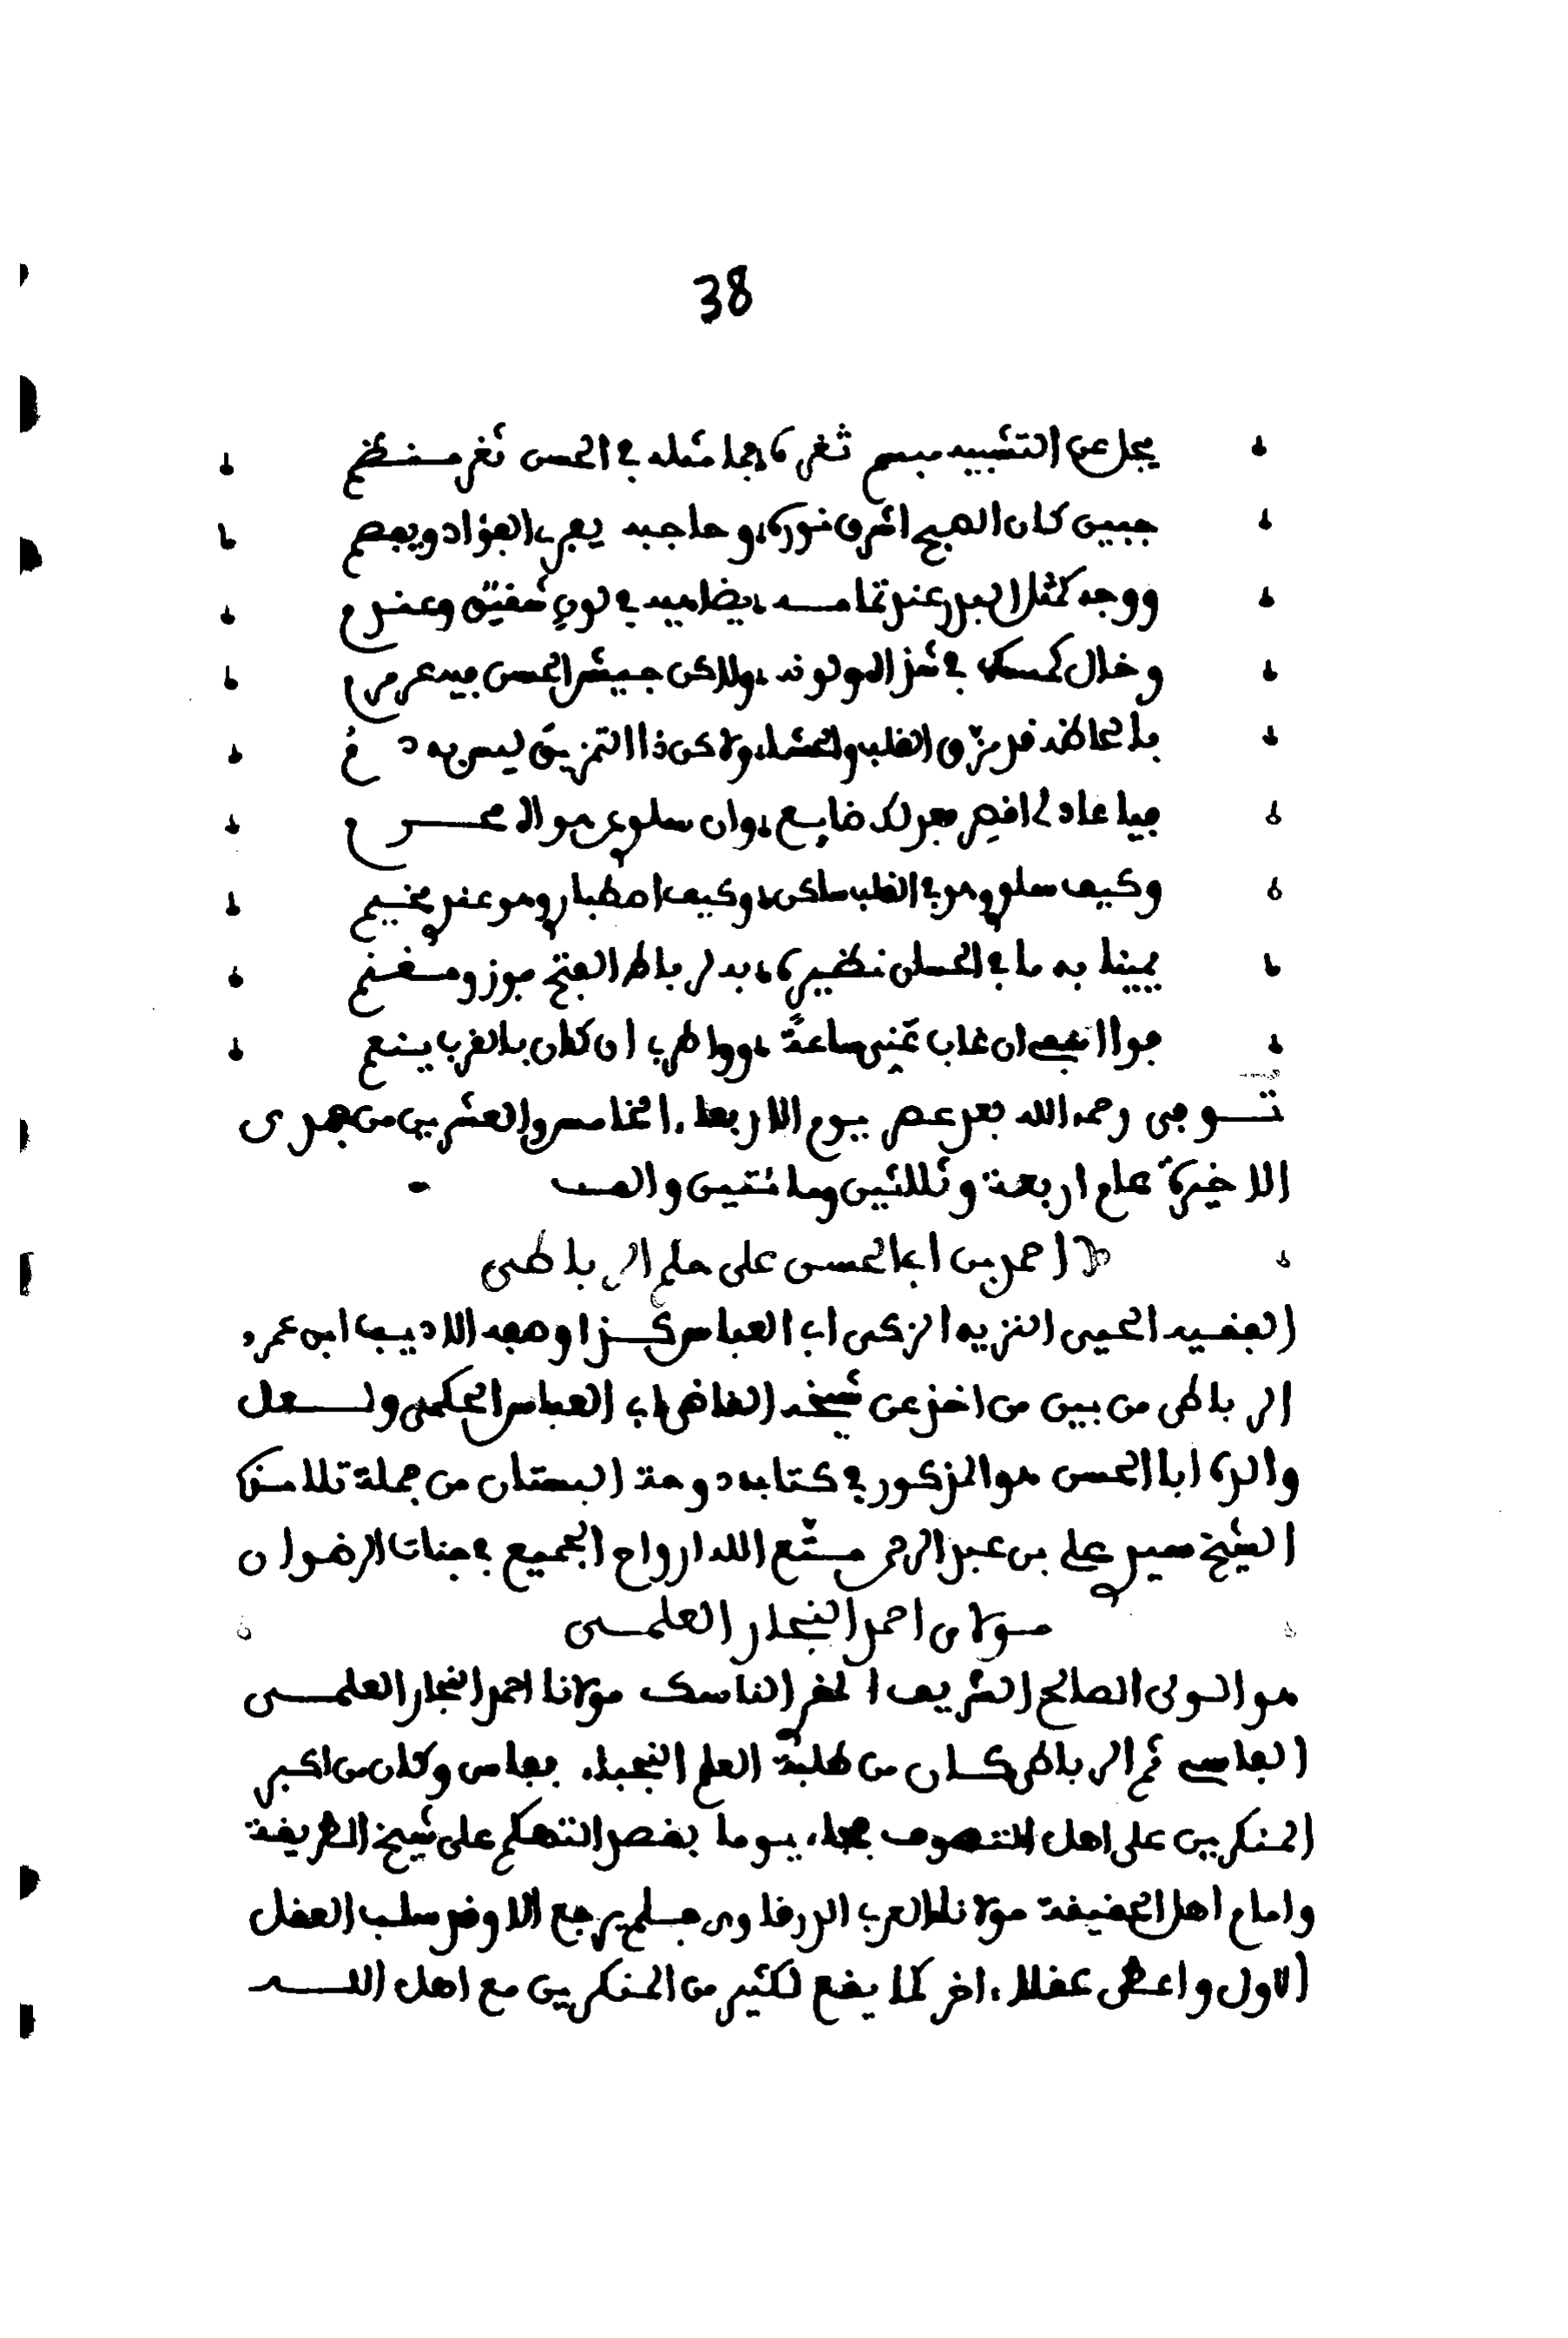 38
يجل عن التشبيه مبسم ثغره فما مثله في الحسن ثغر منظم
جبين كان الصبح اشرق نوره وحاجبه يفري الفؤاد ويفصم
ووجه كمثل البدر عند تمامه يضاهيه في لون شقيق وعندم
وخال كمسك في شذاه ولونه ولاكن جيش الحسن فيه عرمرم
بالحاظه قد مزق القلب والحشا ولاكن ذا التمزيق ليس به دم
فيا عاذلي اقصر فعذلك ضايع وان سلوي عن هواه محرم
وكيف سلوي وهو في القلب ساكن وكيف اصطباري وهو عندي مخيم
يمينا به ما في الحسان نظيره به لرباط الفتح فوز ومغنم
فوا اسفي ان غاب عني ساعة ووا طربي ان كان بالقرب ينعم
توفى رحمه الله بعد عصر يوم الاربعاء الخامس والعشرين من جمدى
الاخيرة عام اربعة وثلاثين ومائتين والف
احمد بن ابا الحسن على حلم الرباطى
الفقيه الحيى النزيه الزكى ابى العباس كذا وصفه الاديب ابن عمرو
الرباطى من بين من اخذ عن شيخه القاضى ابى العباس الحكمى ولعل
والده ابا الحسن هو المذكور في كتابه دوحة البستان من جملة تلامذة
الشيخ سيدي علي بن عبد الرحمن متع الله ارواح الجميع في جنات الرضوان
مولاى احمد النجار العلمى
هو الولى الصالح الشريف الناسك مولانا احمد النجار العلمى
الفاسي ثم الرباطى كان من طلبة العلم النجباء بفاس وكان من اكبر
المنكرين على اهل التصوف فجاء يوما بقصد التهكم على شيخ الطريقة
وامام اهل الحقيقة مولانا العربى الدرقاوى فلم يرجع الا وقد سلب العقل
الاول واعطى عقلا ءاخر كما يقع لكثير من المنكرين مع اهل الله